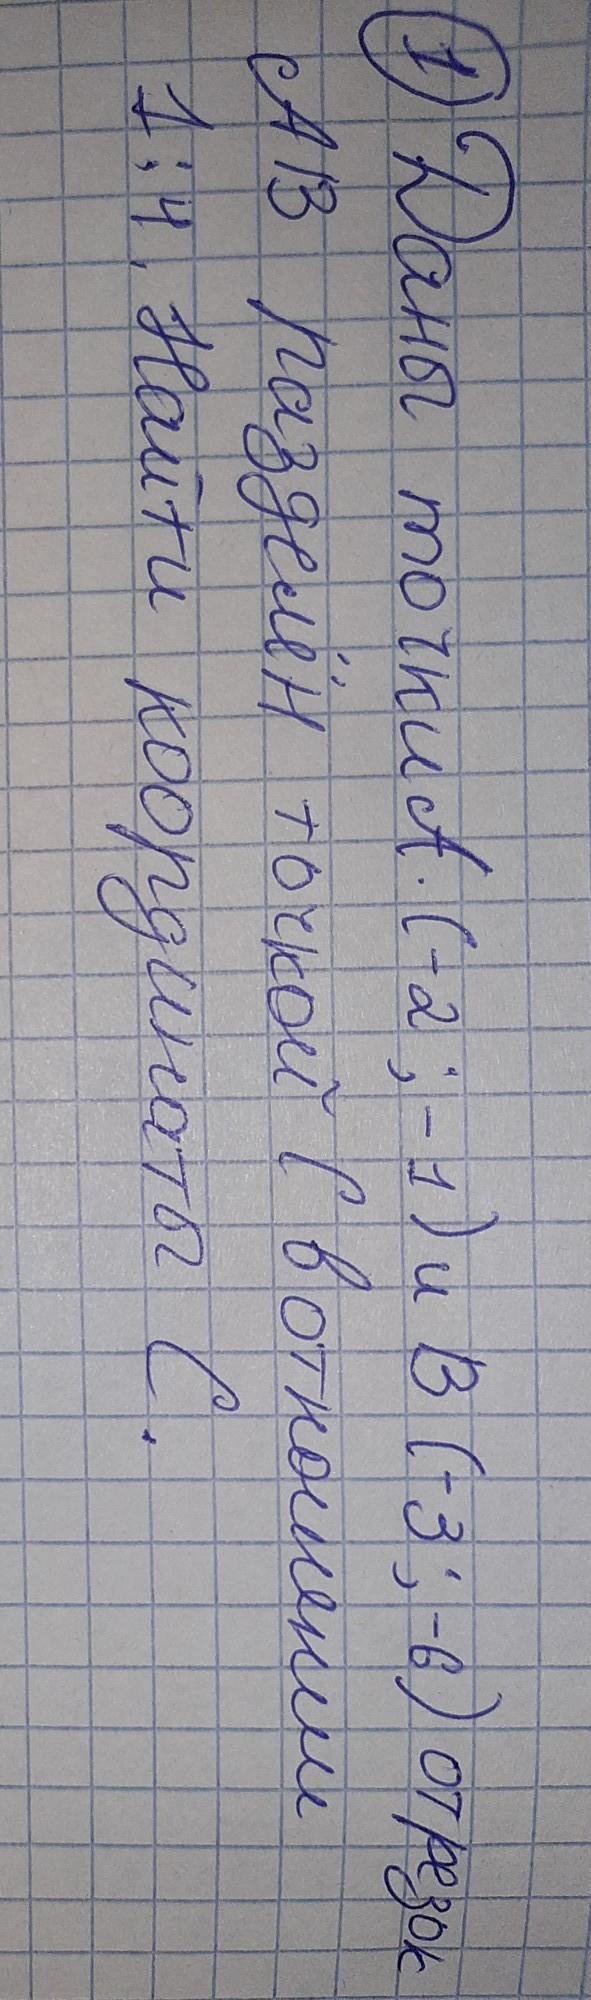 1 Даны точки А. (-2; -1) и В (-3; -6) отрезок
АВ разделён точкой С в отношении
1:4. Найти координаты С.